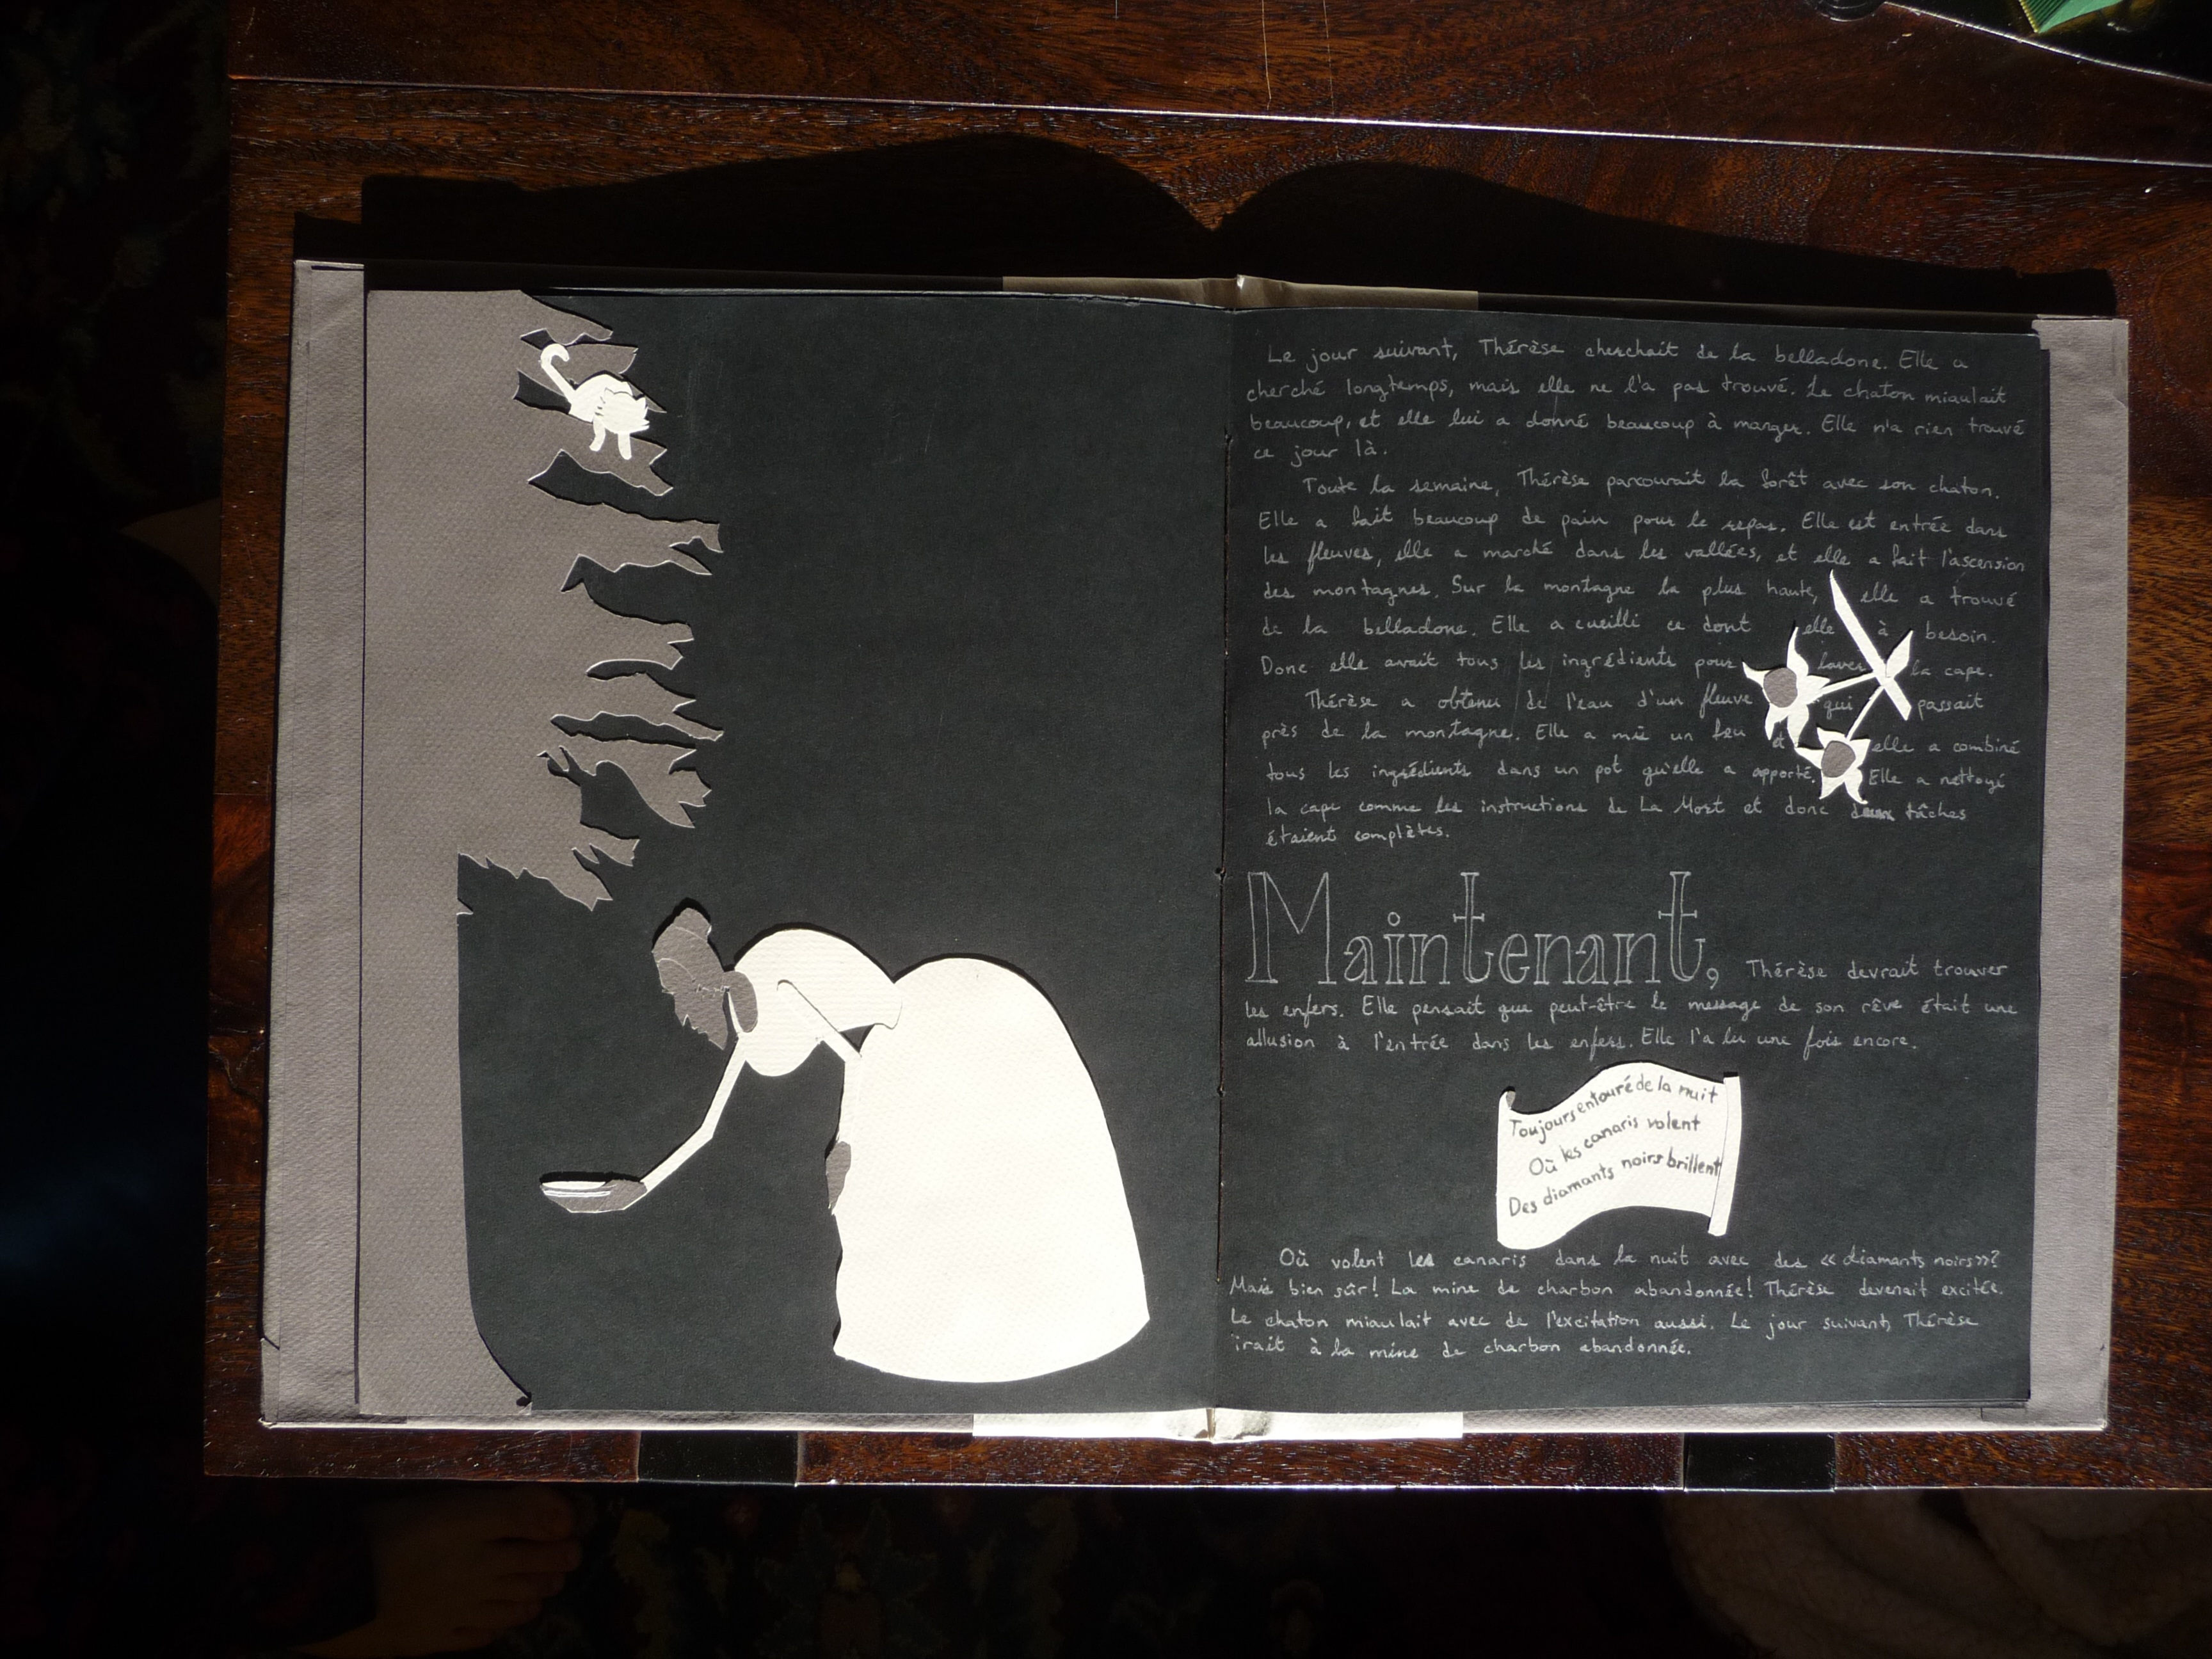 Le jour suivant, Thérèse cherchait de la belladone. Elle a
cherché longtemps, mais elle ne l'a pas trouvé. Le chaton miaulait
beaucoup, et elle lui a donné beaucoup à manger. Elle n'a rien trouvé
ce jour là.
Toute la semaine, Thérèse parcourait la forêt avec son chaton.
Elle a fait beaucoup de pain pour le repas. Elle est entrée dans
les fleuves, elle a marché dans les vallées, et elle a fait l'ascension
des montagnes. Sur la montagne la plus haute, elle a trouvé
de la belladone. Elle a cueilli ce dont elle à besoin.
Donc elle avait tous les ingrédients pour laver la cape.
Thérèse a obtenu de l'eau d'un fleuve qui passait
près de la montagne. Elle a mis un feu et elle a combiné
tous les ingrédients dans un pot qu'elle a apporté. Elle a nettoyé
la cape comme les instructions de La Mort et donc deux tâches
étaient complètes.
Maintenant, Thérèse devrait trouver
les enfers. Elle pensait que peut-être le message de son rêve était une
allusion à l'entrée dans les enfers. Elle l'a lu une fois encore.
Toujours entouré de la nuit
Où les canaris volent
Des diamants noirs brillent
Où volent les canaris dans la nuit avec des « diamants noirs»?
Mais bien sûr! La mine de charbon abandonnée! Thérèse devenait excitée.
Le chaton miaulait avec de l'excitation aussi. Le jour suivant, Thérèse
irait à la mine de charbon abandonnée.